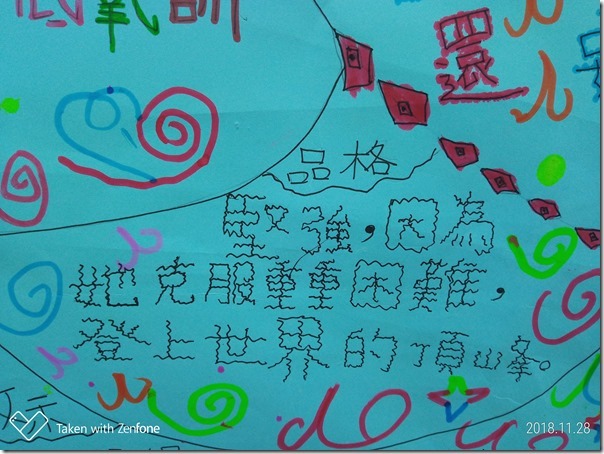 還
品格
堅強,因為
她克服重重困難,
登上世界的頂峰。
Taken with Zenfone
2018.11.28